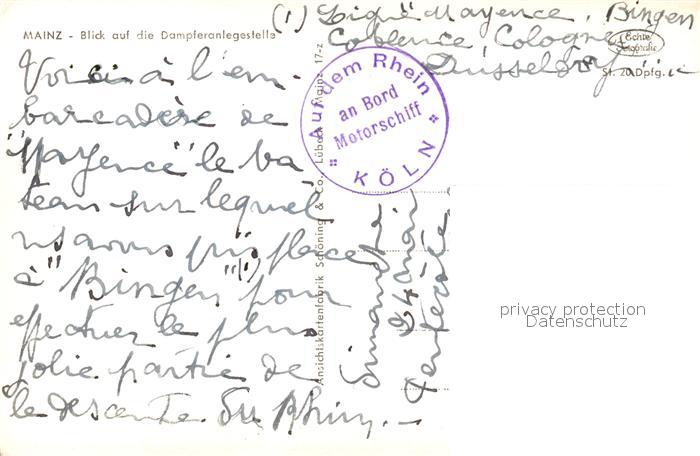 MAINZ - Blick auf die Dampferanlegestelle
(1) Ligne Mayence, Bingen
Coblence, Cologne
Düsseldorf
Echte
Fotografie
St. 20 Dpfg.
Voici à l'em-
barcadère de
"Mayence" le ba
teau sur lequel
ns avons pris place
à "Bingen" (1) pour
effectuer la plus
jolie partie de
la descente du Rhin. -
Ansichtskartenfabrik Schöning & Co., Lübeck Mainz 17-z
Auf dem Rhein
an Bord
Motorschiff
KÖLN
Dimanche
mai
Pentecôte
privacy protection
Datenschutz